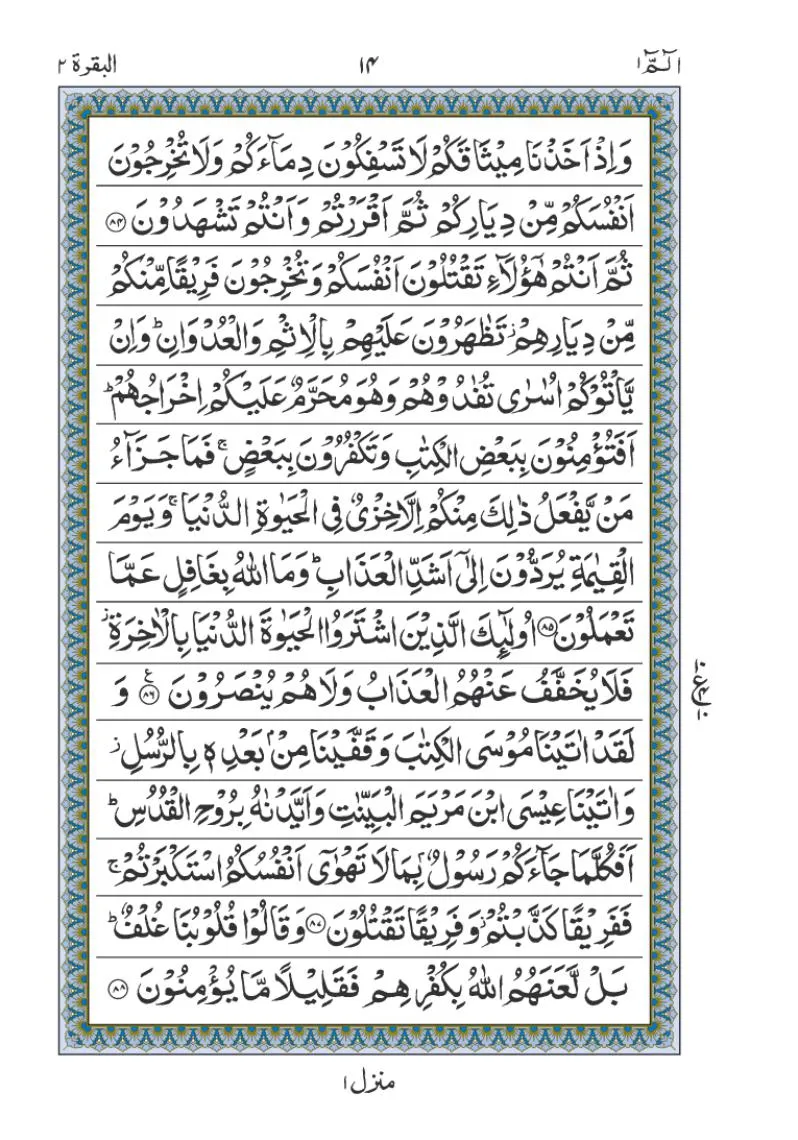 الٓمّٓ ١
١٤
البقرة ٢
وَاِذْ اَخَذْنَا مِيْثَاقَكُمْ لَا تَسْفِكُوْنَ دِمَآءَكُمْ وَلَا تُخْرِجُوْنَ
اَنْفُسَكُمْ مِّنْ دِيَارِكُمْ ثُمَّ اَقْرَرْتُمْ وَاَنْتُمْ تَشْهَدُوْنَ ﴿٨٤﴾
ثُمَّ اَنْتُمْ هٰٓؤُلَآءِ تَقْتُلُوْنَ اَنْفُسَكُمْ وَتُخْرِجُوْنَ فَرِيْقًا مِّنْكُمْ
مِّنْ دِيَارِهِمْ ز تَظٰهَرُوْنَ عَلَيْهِمْ بِالْاِثْمِ وَالْعُدْوَانِ ؕ وَاِنْ
يَّاْتُوْكُمْ اُسٰرٰى تُفٰدُوْهُمْ وَهُوَ مُحَرَّمٌ عَلَيْكُمْ اِخْرَاجُهُمْ ؕ
اَفَتُؤْمِنُوْنَ بِبَعْضِ الْكِتٰبِ وَتَكْفُرُوْنَ بِبَعْضٍ ۚ فَمَا جَزَآءُ
مَنْ يَّفْعَلُ ذٰلِكَ مِنْكُمْ اِلَّا خِزْىٌ فِى الْحَيٰوةِ الدُّنْيَا ۚ وَيَوْمَ
الْقِيٰمَةِ يُرَدُّوْنَ اِلٰٓى اَشَدِّ الْعَذَابِ ؕ وَمَا اللّٰهُ بِغَافِلٍ عَمَّا
تَعْمَلُوْنَ ﴿٨٥﴾ اُولٰٓئِكَ الَّذِيْنَ اشْتَرَوُا الْحَيٰوةَ الدُّنْيَا بِالْاٰخِرَةِ ز
فَلَا يُخَفَّفُ عَنْهُمُ الْعَذَابُ وَلَا هُمْ يُنْصَرُوْنَ ﴿٨٦﴾ ع وَ
لَقَدْ اٰتَيْنَا مُوْسَى الْكِتٰبَ وَقَفَّيْنَا مِنْۢ بَعْدِهٖ بِالرُّسُلِ ز
وَاٰتَيْنَا عِيْسَى ابْنَ مَرْيَمَ الْبَيِّنٰتِ وَاَيَّدْنٰهُ بِرُوْحِ الْقُدُسِ ؕ
اَفَكُلَّمَا جَآءَكُمْ رَسُوْلٌۢ بِمَا لَا تَهْوٰٓى اَنْفُسُكُمُ اسْتَكْبَرْتُمْ ۚ
فَفَرِيْقًا كَذَّبْتُمْ ز وَفَرِيْقًا تَقْتُلُوْنَ ﴿٨٧﴾ وَقَالُوْا قُلُوْبُنَا غُلْفٌ ؕ
بَلْ لَّعَنَهُمُ اللّٰهُ بِكُفْرِهِمْ فَقَلِيْلًا مَّا يُؤْمِنُوْنَ ﴿٨٨﴾
منزل ١